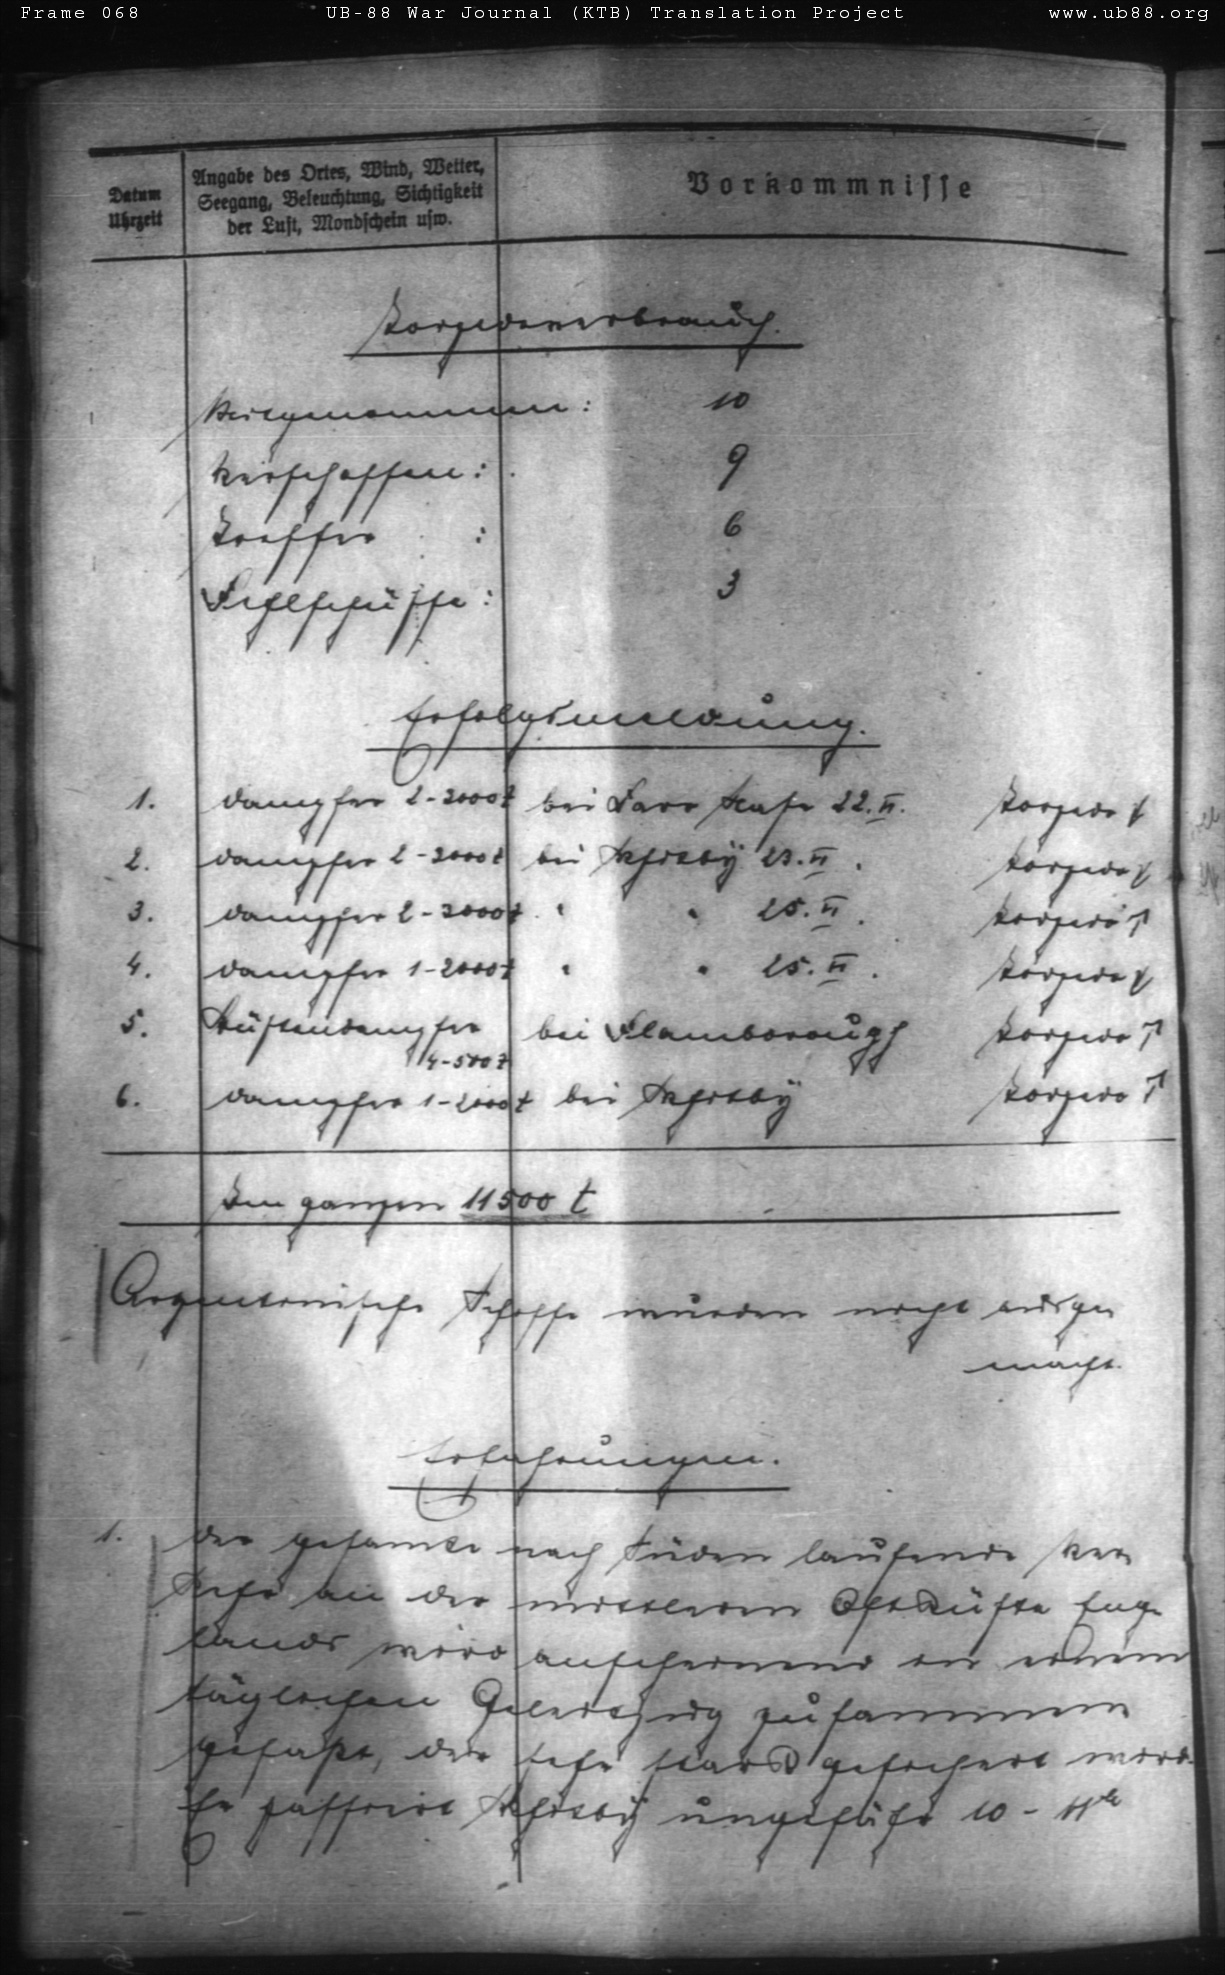 Frame 068 UB-88 War Journal (KTB) Translation Project www.ub88.org
Datum
Uhrzeit
Angabe des Ortes, Wind, Wetter,
Seegang, Beleuchtung, Sichtigkeit
der Luft, Mondschein usw.
Vorkommnisse
Torpedoverbrauch.
Mitgenommen: 10
Verschossen: 9
Treffer : 6
Fehlschüsse: 3
Erfolgsmeldung.
1. Dampfer 2-3000 t bei 22.II. Torpedo
2. Dampfer 2-3000 t bei Whitby 23.II. Torpedo
3. Dampfer 2-3000 t " " 25.II. Torpedo
4. Dampfer 1-2000 t " " 25.II. Torpedo
5. Küstendampfer bei Flamborough Torpedo
4-500 t
6. Dampfer 1-2000 t bei Whitby Torpedo
Im ganzen 11500 t
Argentinische Schiffe wurden nicht ausge
macht.
Erfahrungen.
1. Der gesamte nach Süden laufende Ver
kehr an der mittleren Ostküste Eng-
lands wird anscheinend in einem
täglichen Geleitzug zusammen
gefaßt, der sehr stark gesichert wird.
Er passiert Whitby ungefähr 10 - 11h